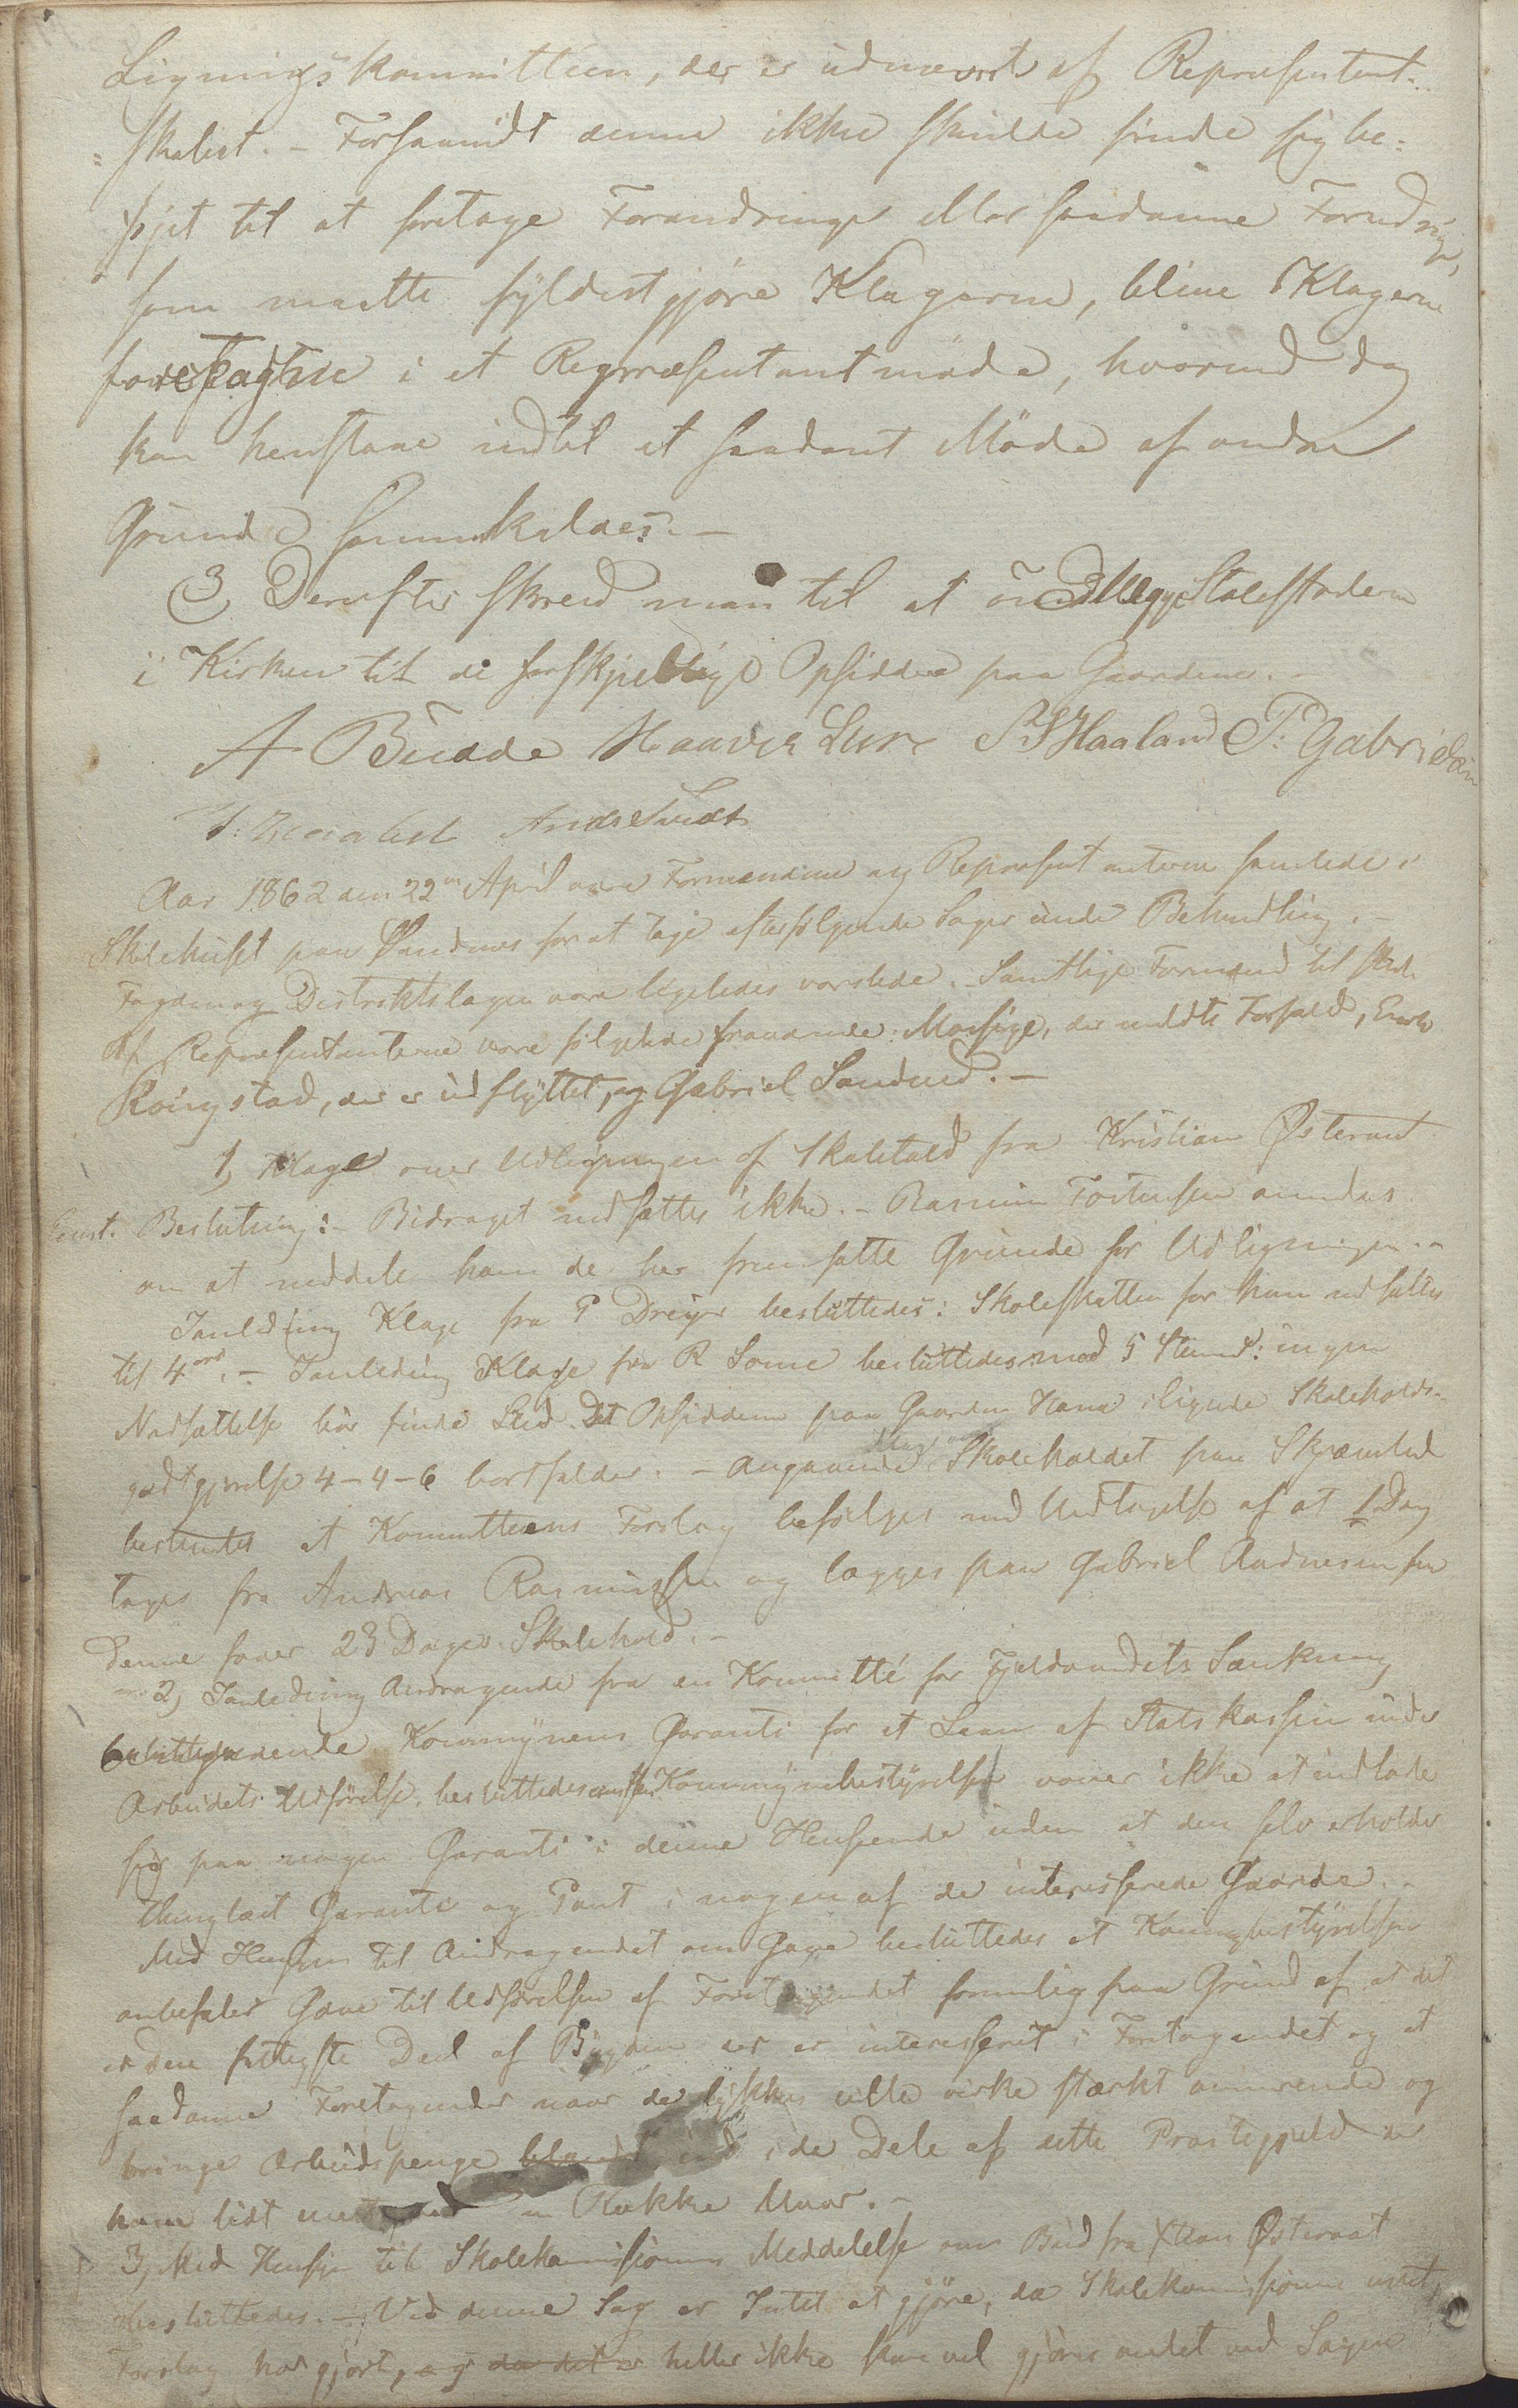 Ligningskommitteen, der er udnævnt af Repræsentant-
=skabet. - Forsaavidt denne ikke skulde finde sig be=
føjet til at foretage Forandringer eller saadanne Forandringer,
som maatte fyldestgjøre Klagerne, blive Klagerne
foretagne i et Repræsentantmøde, hvormed dog
kan henstaae indtil et saadant Møde af andre
Grunde sammenkaldes. -
3) Derefter skred man til at udlægge Stolestaderne
i Kirken til de forskjellige Opsiddere paa Gaardene. -
A Budde Haaver Lura T Haaland T: Gabrielsen
Aar 1862 den 22de April vare Formændene og Repræsentanterne samlede i
Skolehuset paa Sandnes for at tage efterfølgende Sager under Behandling. -
Fogden og Distriktslægen vare ligeledes varslede. Samtlige Formænd til Stede.
Af Repræsentanterne vare følgende fraværende: Massige, der meldte Forfald,
Roingstad, der er udflyttet, og Gabriel Sandved. -
1, Klage over Udligningen af Skolehold fra Kristian Østeraat
Beslutning: - Bidraget nedsættes ikke. - Rasmus Torkelsen anmodes
om at meddele ham de her fremsatte Grunde for Udligningen. -
I Anledning Klage fra P Dreyer besluttedes: Skoleskatten for ham nedsættes
til 4 ort. - I Anledning Klage fra R Some besluttedes med 5 Stemmer: ingen
Nedsættelse bør finde Sted. Det Opsidderne paa Gaarden Hana ilignede Skoleholds-
godtgjørelse 4-4-6 bortfalder. - Angaaende Skoleholdet paa Skjæveland
bestemtes at Kommitteens Forslag befølges med Undtagelse af at 1 Dag
tages fra Andreas Rasmussen og lægges paa Gabriel Andreassen saa
denne faaer 23 Dages Skolehold. -
2, I Anledning Andragende fra en Kommitté for Fjeldvandets Sænkning
Kommunens Garanti for et Laan af Statskassen under
Arbeidets Udførelse, besluttedes Kommunebestyrelsen vover ikke at indlade
sig paa nogen Garanti i denne Henseende uden at den selv erholder
thinglæst Garanti og Pant i nogen af de interesserede Gaarde. -
Med Hensyn til Andragendet om Gave besluttedes at Kommunebestyrelsen
anbefaler Gave til Udførelsen af Foretagendet fornemlig paa Grund af at det
er den fattigste Deel af Bygden der er interesseret i Foretagendet og at
saadanne Foretagender naar de lykkes ville virke stærkt animerende og
bringe Arbeidspenge ind i de Dele af dette Præstegjæld der
have lidt en Række Uaar. -
3, Med Hensyn til Skolekommissionens Meddelelse om Bud fra Østeraat
besluttedes. - Ved denne Sag er Intet at gjøre, da Skolekommissionen intet
Forslag har gjort, og da det er heller ikke kan vel gjøres andet ved Sagen